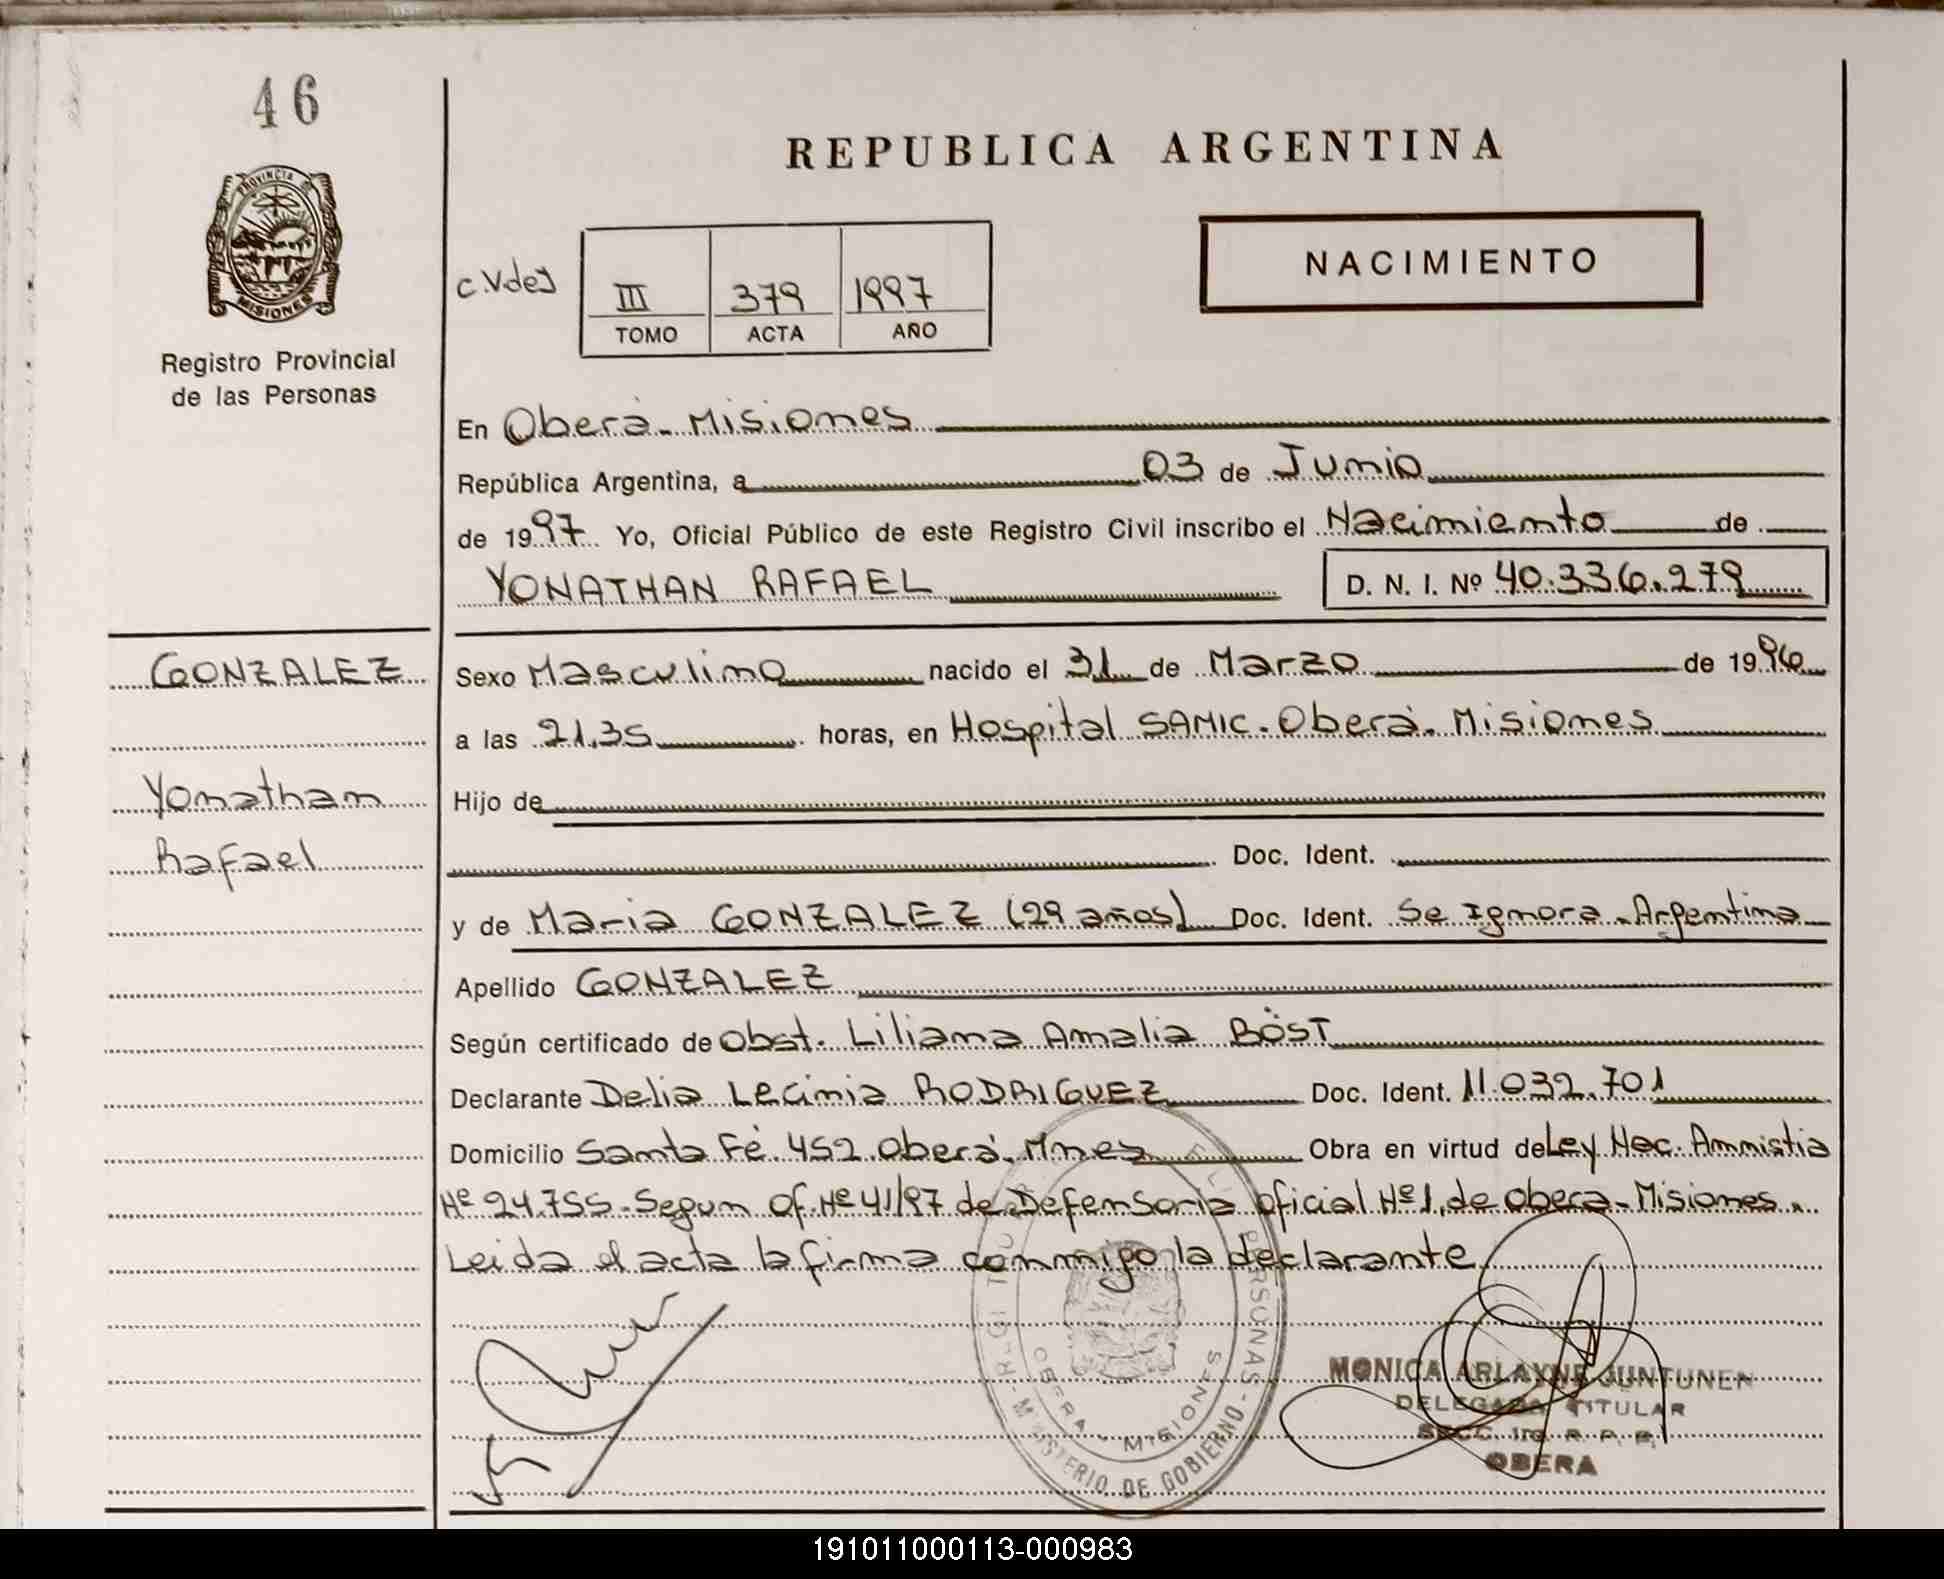 46
PROVINCIA DE
MISIONES
Registro Provincial
de las Personas
REPUBLICA ARGENTINA
NACIMIENTO
III 379 1997
TOMO ACTA AÑO
En Oberá - Misiones
República Argentina, a 03 de Junio
de 1997 Yo, Oficial Público de este Registro Civil inscribo el Nacimiento de
YONATHAN RAFAEL D. N. I. Nº 40.336.279
GONZALEZ
Yonathan
Rafael
Sexo Masculino nacido el 31 de Marzo de 1996
a las 21,35 horas, en Hospital SAMIC. Oberá. Misiones
Hijo de
Doc. Ident.
y de Maria GONZALEZ (29 años) Doc. Ident. Se Ignora - Argentina
Apellido GONZALEZ
Según certificado de Obst. Liliana Amalia BÖST
Declarante Delia Lecinia RODRIGUEZ Doc. Ident. 11.032.701
Domicilio Santa Fé 452 Oberá. Mnes Obra en virtud de Ley Nac. Amnistia
Nº 24.755. Segun Of. Nº 41/97 de Defensoria oficial Nº 1, de Oberá - Misiones.
Leida el acta la firma conmigo la declarante
PERSONAS - MINISTERIO DE GOBIERNO
OBERA - MISIONES
MONICA ARLAYNE JUNTUNEN
DELEGADA TITULAR
SECC. 1ra. R. P. P.
OBERA
191011000113-000983